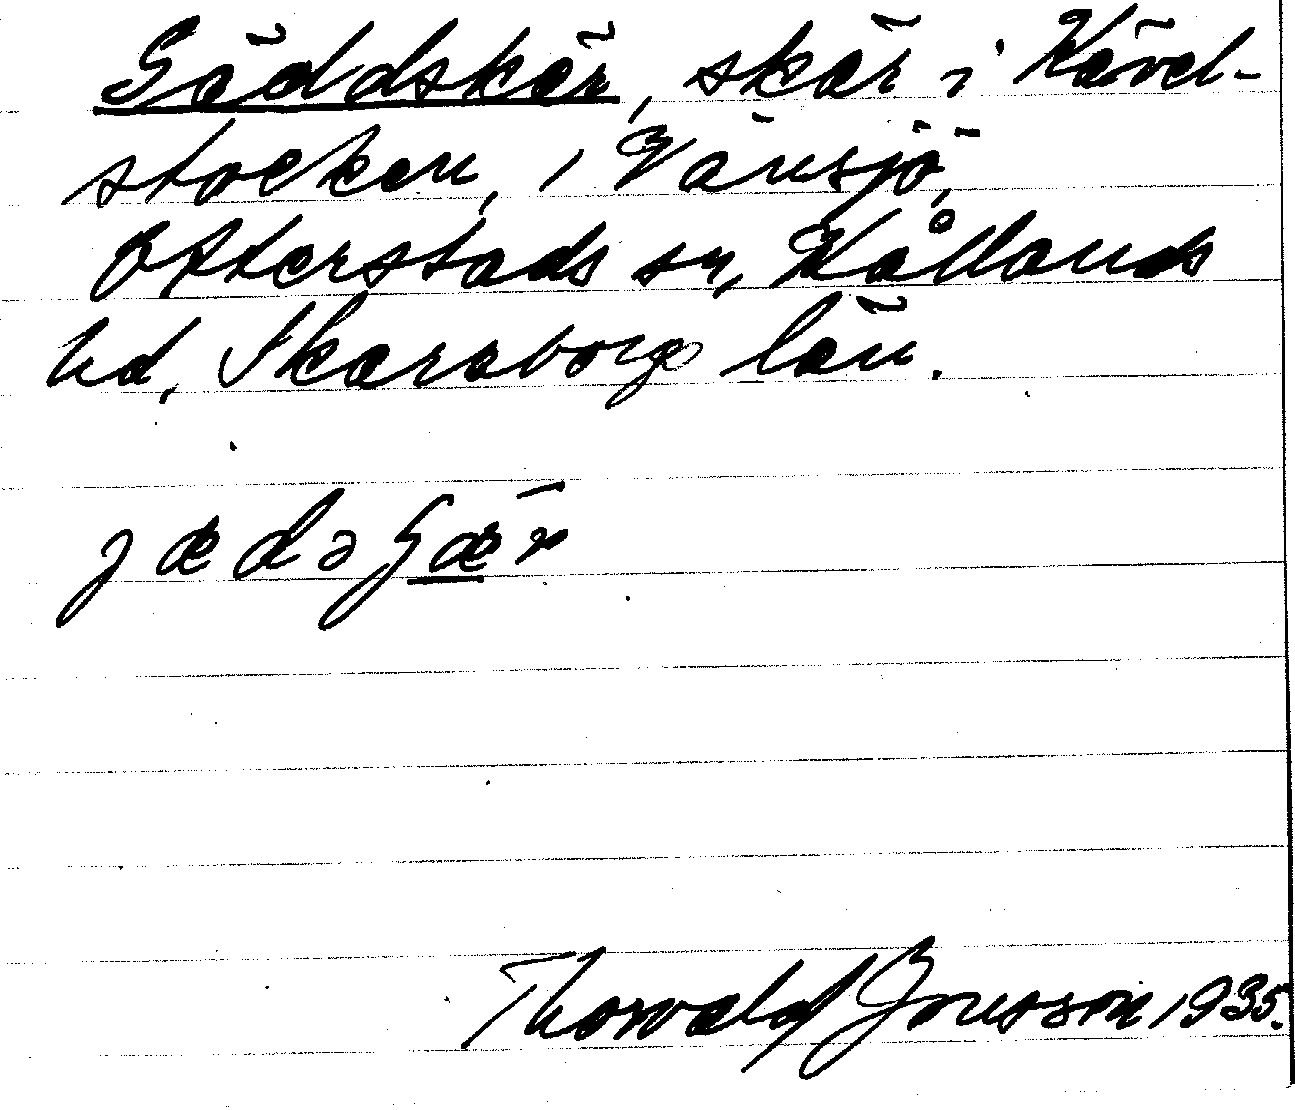 Gäddskär, skär i Kävel-
stocken, i Vänsjö,
Otterstads sn, Kållands
hd, Skaraborgs län.
jædəʃæ̲r
Thorvald Jonsson 1935.